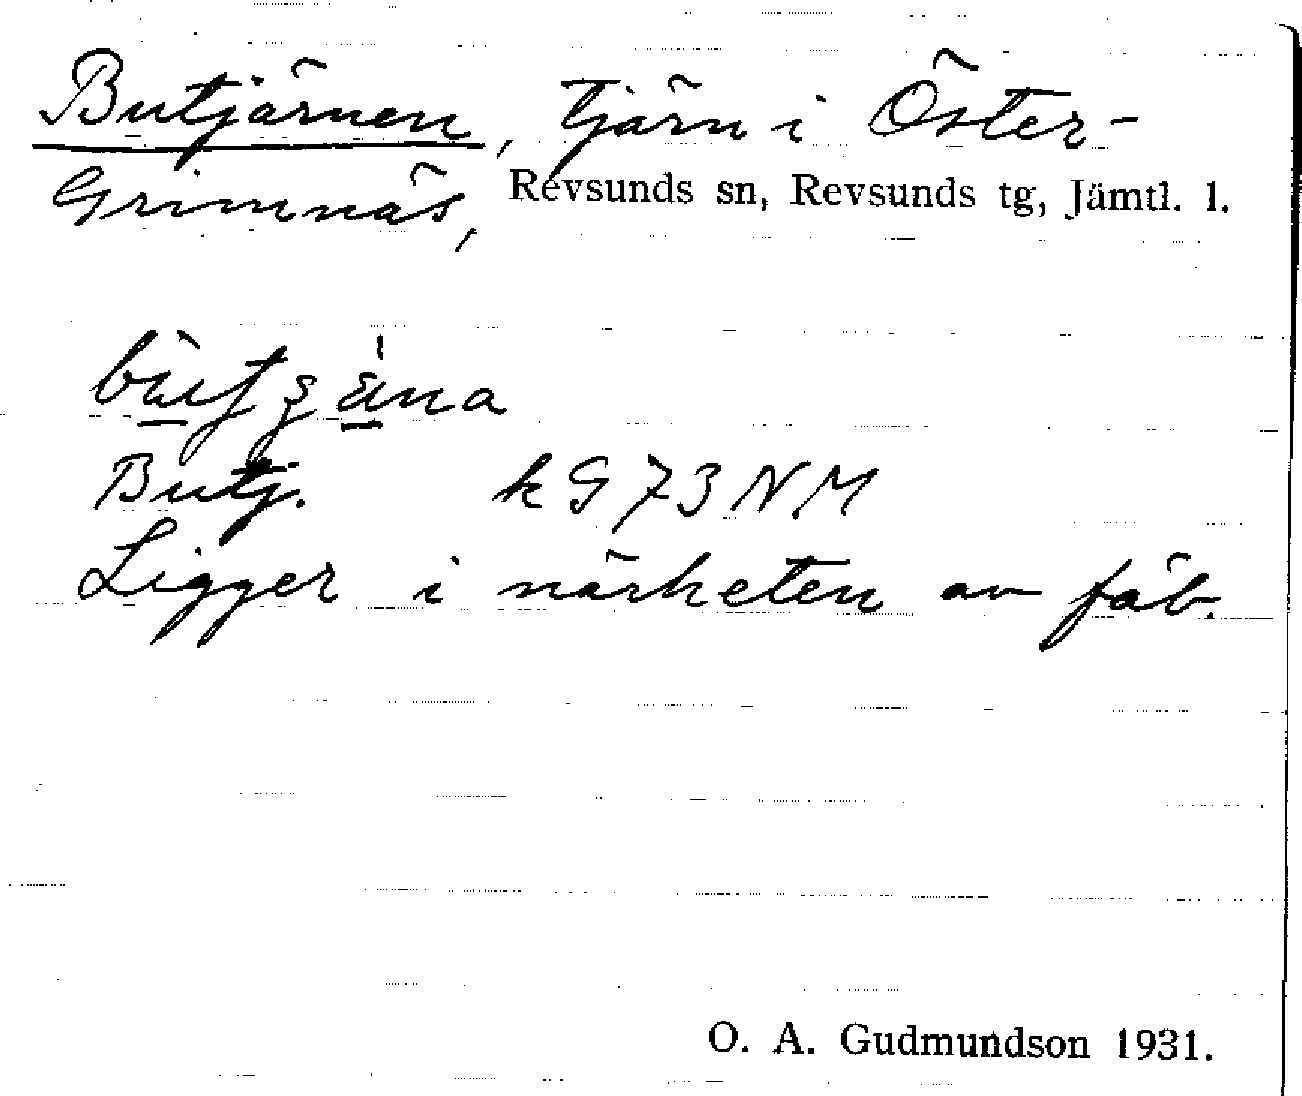 Butjärnen, tjärn i Öster-
Grimnäs, Revsunds sn, Revsunds tg, Jämtl. l.
Butj. k G 73 NM
Ligger i närheten av fäb.
O. A. Gudmundson 1931.